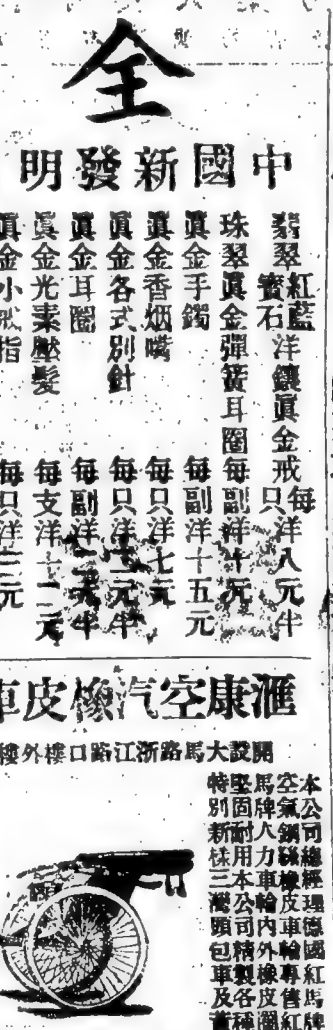 全
中國新發明
翡翠紅藍寶石洋鑲眞金戒每只洋八元半
珠翠眞金彈簧耳圈每副洋十元
眞金手鐲每副洋十五元
眞金香烟嘴每只洋七元
眞金各式別針每只洋元半
眞金耳圈每副洋元半
眞金光素壓髮每支洋十二元
眞金小戒指每只洋三元
滙康空汽橡皮車
開設大馬路浙江路口樓外樓
本公司總經理德國紅馬牌
空氣鋼絲橡皮車輪專售紅
馬牌人力車輪內外橡皮圈
堅固耐用本公司精製各種
特別新樣三灣頭包車及